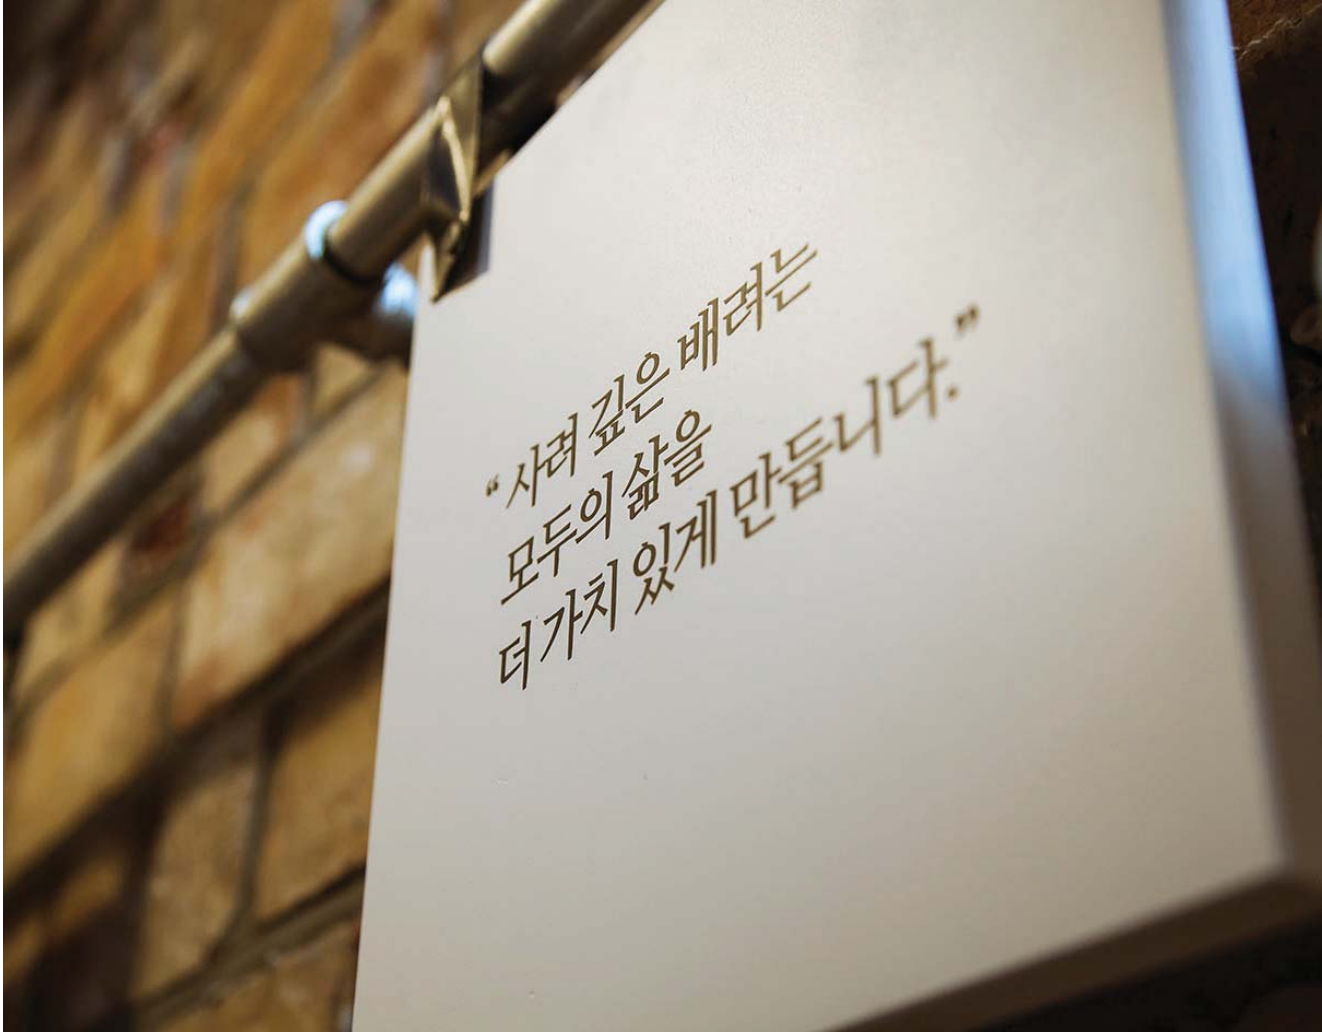 “사려 깊은 배려는
모두의 삶을
더 가치 있게 만듭니다.”